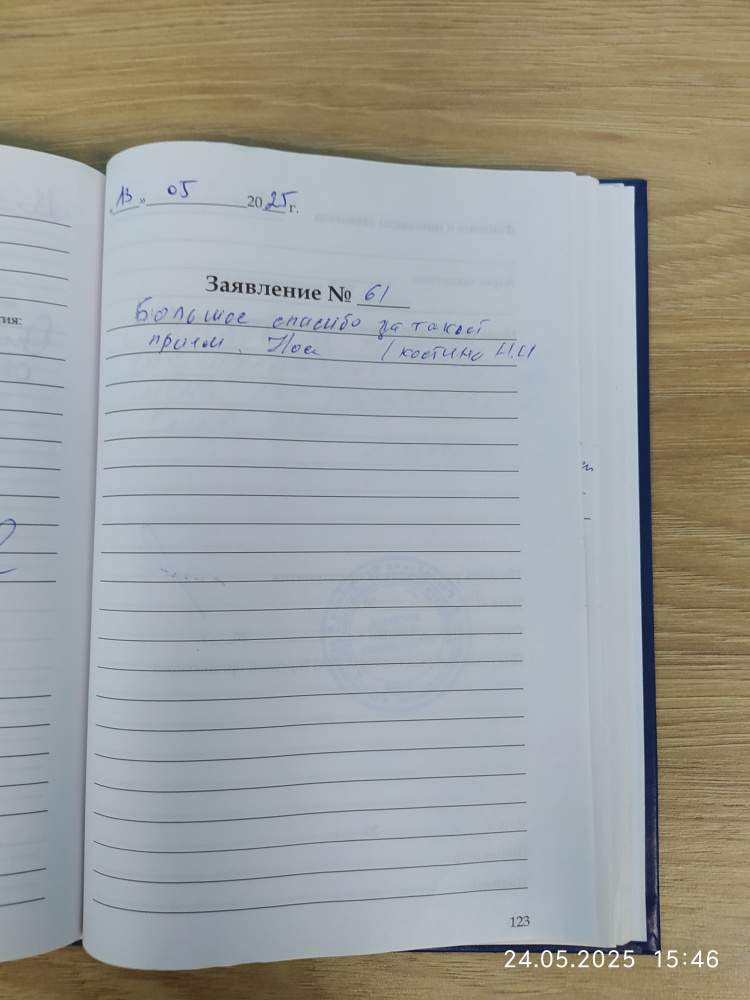 13 » 05 2025 г.
Заявление № 61
Большое спасибо за такой
прием. / Костина Н.И
тия:
123
24.05.2025 15:46